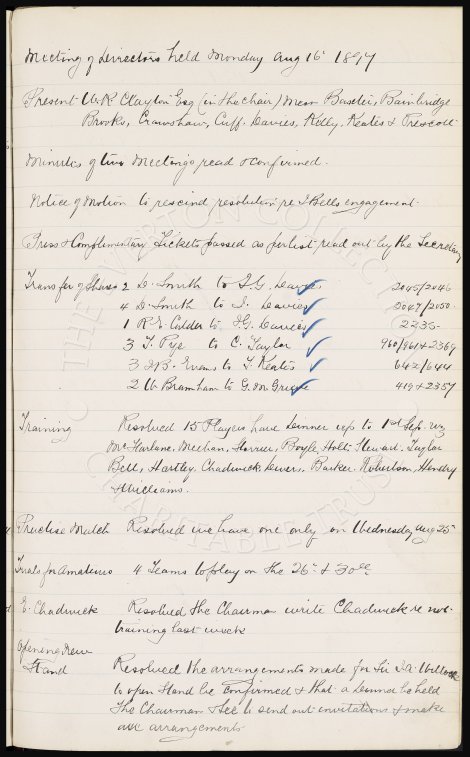 Meeting of Directors held Monday Aug 16th 1897
Present W.R. Clayton Esq (in the chair) Messrs Baxter, Bainbridge
Brooks, Crawshaw, Cuff, Davies, Kelly, Keates & Prescott
Minutes of two Meetings read & confirmed.
Notice of Motion to rescind resolution re J Bells engagement.
Press & Complimentary Tickets passed as per list read out by the Secretary
Transfer of Shares 2 D. Smith to J.G. Davies 2045/2046
4 D. Smith to I. Davies 2047/2050
1 R.E. Calder to J.G. Davies 2235
3 T. Pye to C. Taylor 960/961 & 2369
3 Evans to T. Keates 642/644
2 W Bramham to G. McGregor 419 & 2357
Training Resolved 15 Players have dinner up to 1st Sep. viz
McFarlane, Meehan, Storrier, Boyle, Holt, Stewart, Taylor
Bell, Hartley, Chadwick, Divers, Barker, Robertson, Hendry
& Williams.
Practise Match Resolved we have one only on Wednesday Aug 25th
Trials for Amateurs 4 Teams to play on the 26th & 30th
E. Chadwick Resolved the Chairman write Chadwick re not
training last week
Opening New
Stand Resolved the arrangements made for Sir Willcox
to open Stand be confirmed & that a dinner be held
The Chairman & Sec to send out invitations & make
all arrangements
THE EVERTON COLLECTION
CHARITABLE TRUST